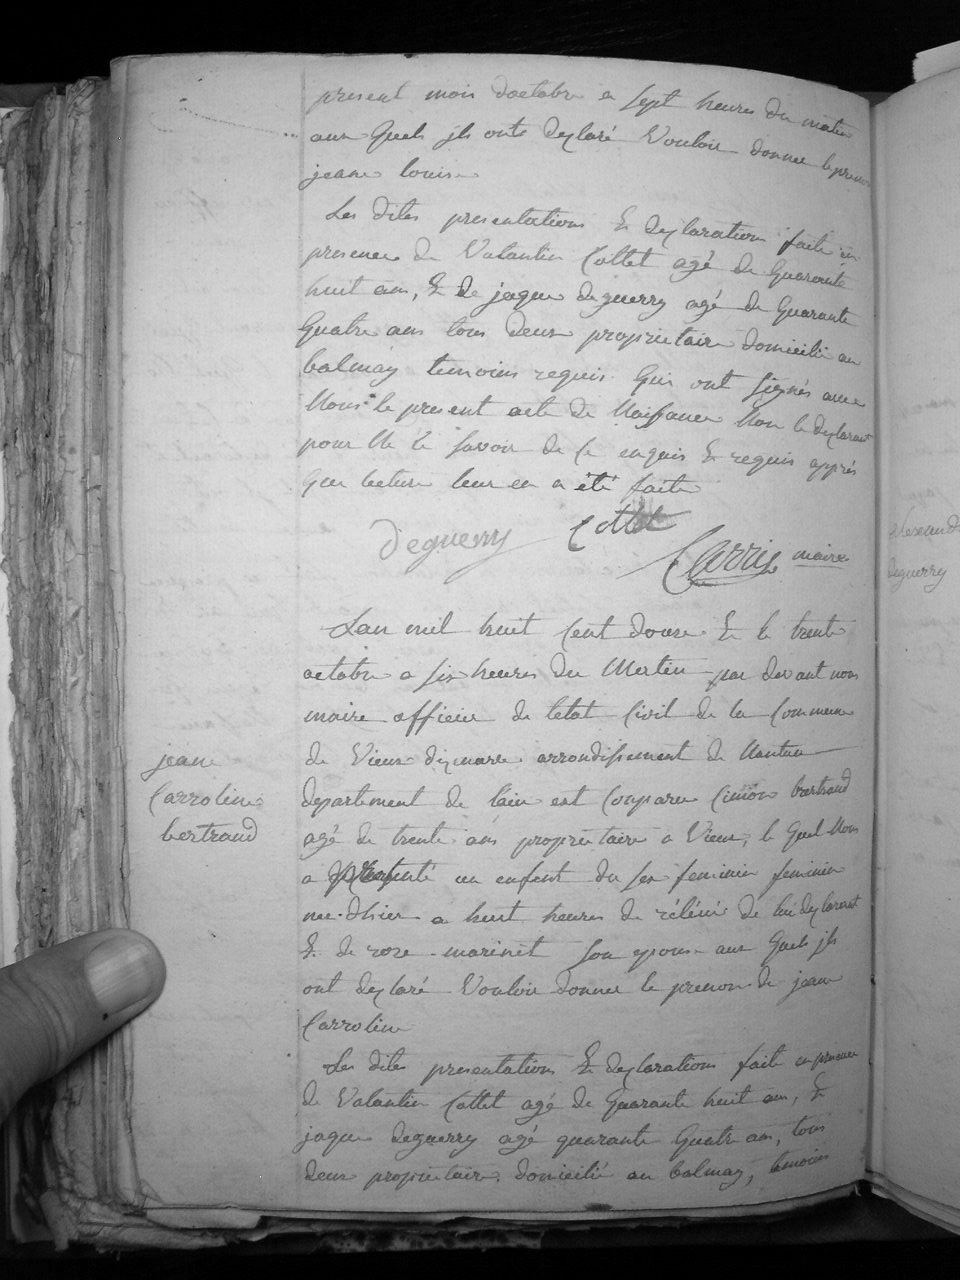 present mois doctobre a sept heures du matin
aux Quels jls onts declaré Vouloir donner le prenom
jeane louise
Les dites presentations & declaration faite en
presence de Valantin Collet agé de Quarante
huit ans, & de jaque deguerry agé de Quarante
Quatre ans tous deux proprietaire domicilié au
balmay temoins requis Qui ont signés avec
Nous le present acte de Naissance Non le declarant
pour Ne le savoir de ce enquis & requis apprés
Que lecture leur en a été faite
Deguerry Collet
Carris maire
Lan mil huit Cent douze & le trente
octobre a six heures du Mattin par devant nous
maire officier de letat Civil de la Commune
de Vieux dizenave arrondissement de Nantua
departement de lain est Comparu Cimon bertrand
agé de trente ans proprietaire a Vieux, le Quel Nous
a presenté un enfant du sex feminin feminin
nee dhier a huit heures de de lui declarant
& de roze marinet son epouse aux Quels jls
ont declaré Vouloir donner le prenom de jeane
Carroline
Les dites presentations & declarations fait en presence
de Valantin Collet agé de Quarante huit ans, &
jaque deguerry agé quarante Quatre ans, tous
deux proprietaire domicilié au balmay, temoins
jeane
Carroline
bertrand
deguerry